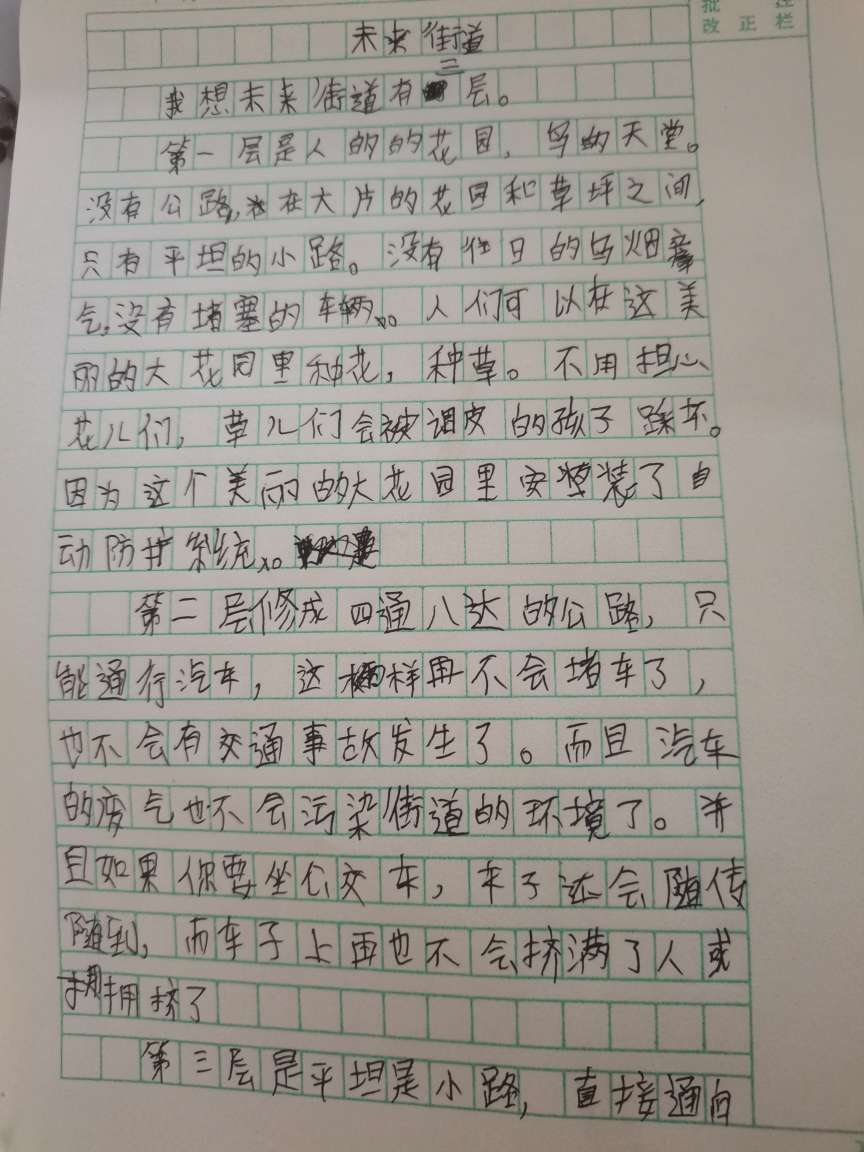 批 注
改正栏
未来街道
我想未来街道有三层。
第一层是人的的花园，鸟的天堂。
没有公路，在大片的花园和草坪之间，
只有平坦的小路。没有往日的乌烟瘴
气，没有堵塞的车辆。人们可以在这美
丽的大花园里种花，种草。不用担心
花儿们，草儿们会被调皮的孩子踩坏。
因为这个美丽的大花园里安装了自
动防护系统。
第二层修成四通八达的公路，只
能通行汽车，这样再不会堵车了，
也不会有交通事故发生了。而且汽车
的废气也不会污染街道的环境了。并
且如果你要坐公交车，车子还会随传
随到，而车子上再也不会挤满了人或
拥挤了
第三层是平坦是小路，直接通向